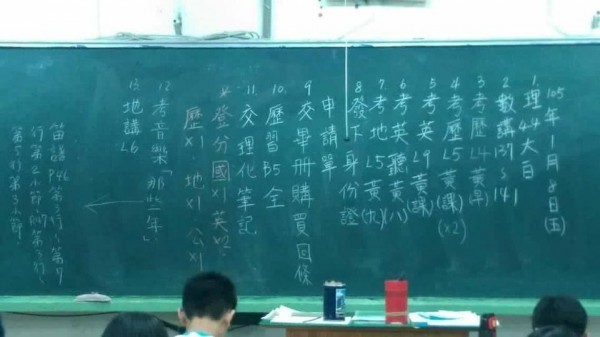 105年1月8日(五)
1.理44大白
2.數講137~141
3.考歷L4黃(平)
4.考歷L5黃(課)(x2)
5.考英L9黃(課)
6.考英聽黃(八)
7.考地L5黃(九)
8.發下身份證
申請單
9.交畢冊購買回條
10.歷習B5全
11.交理化筆記
*登分國x1英x2
歷x1地x1公x1
12.考音樂「那些年」
13.地講L6
笛譜P46第
行第2小節
第3小節